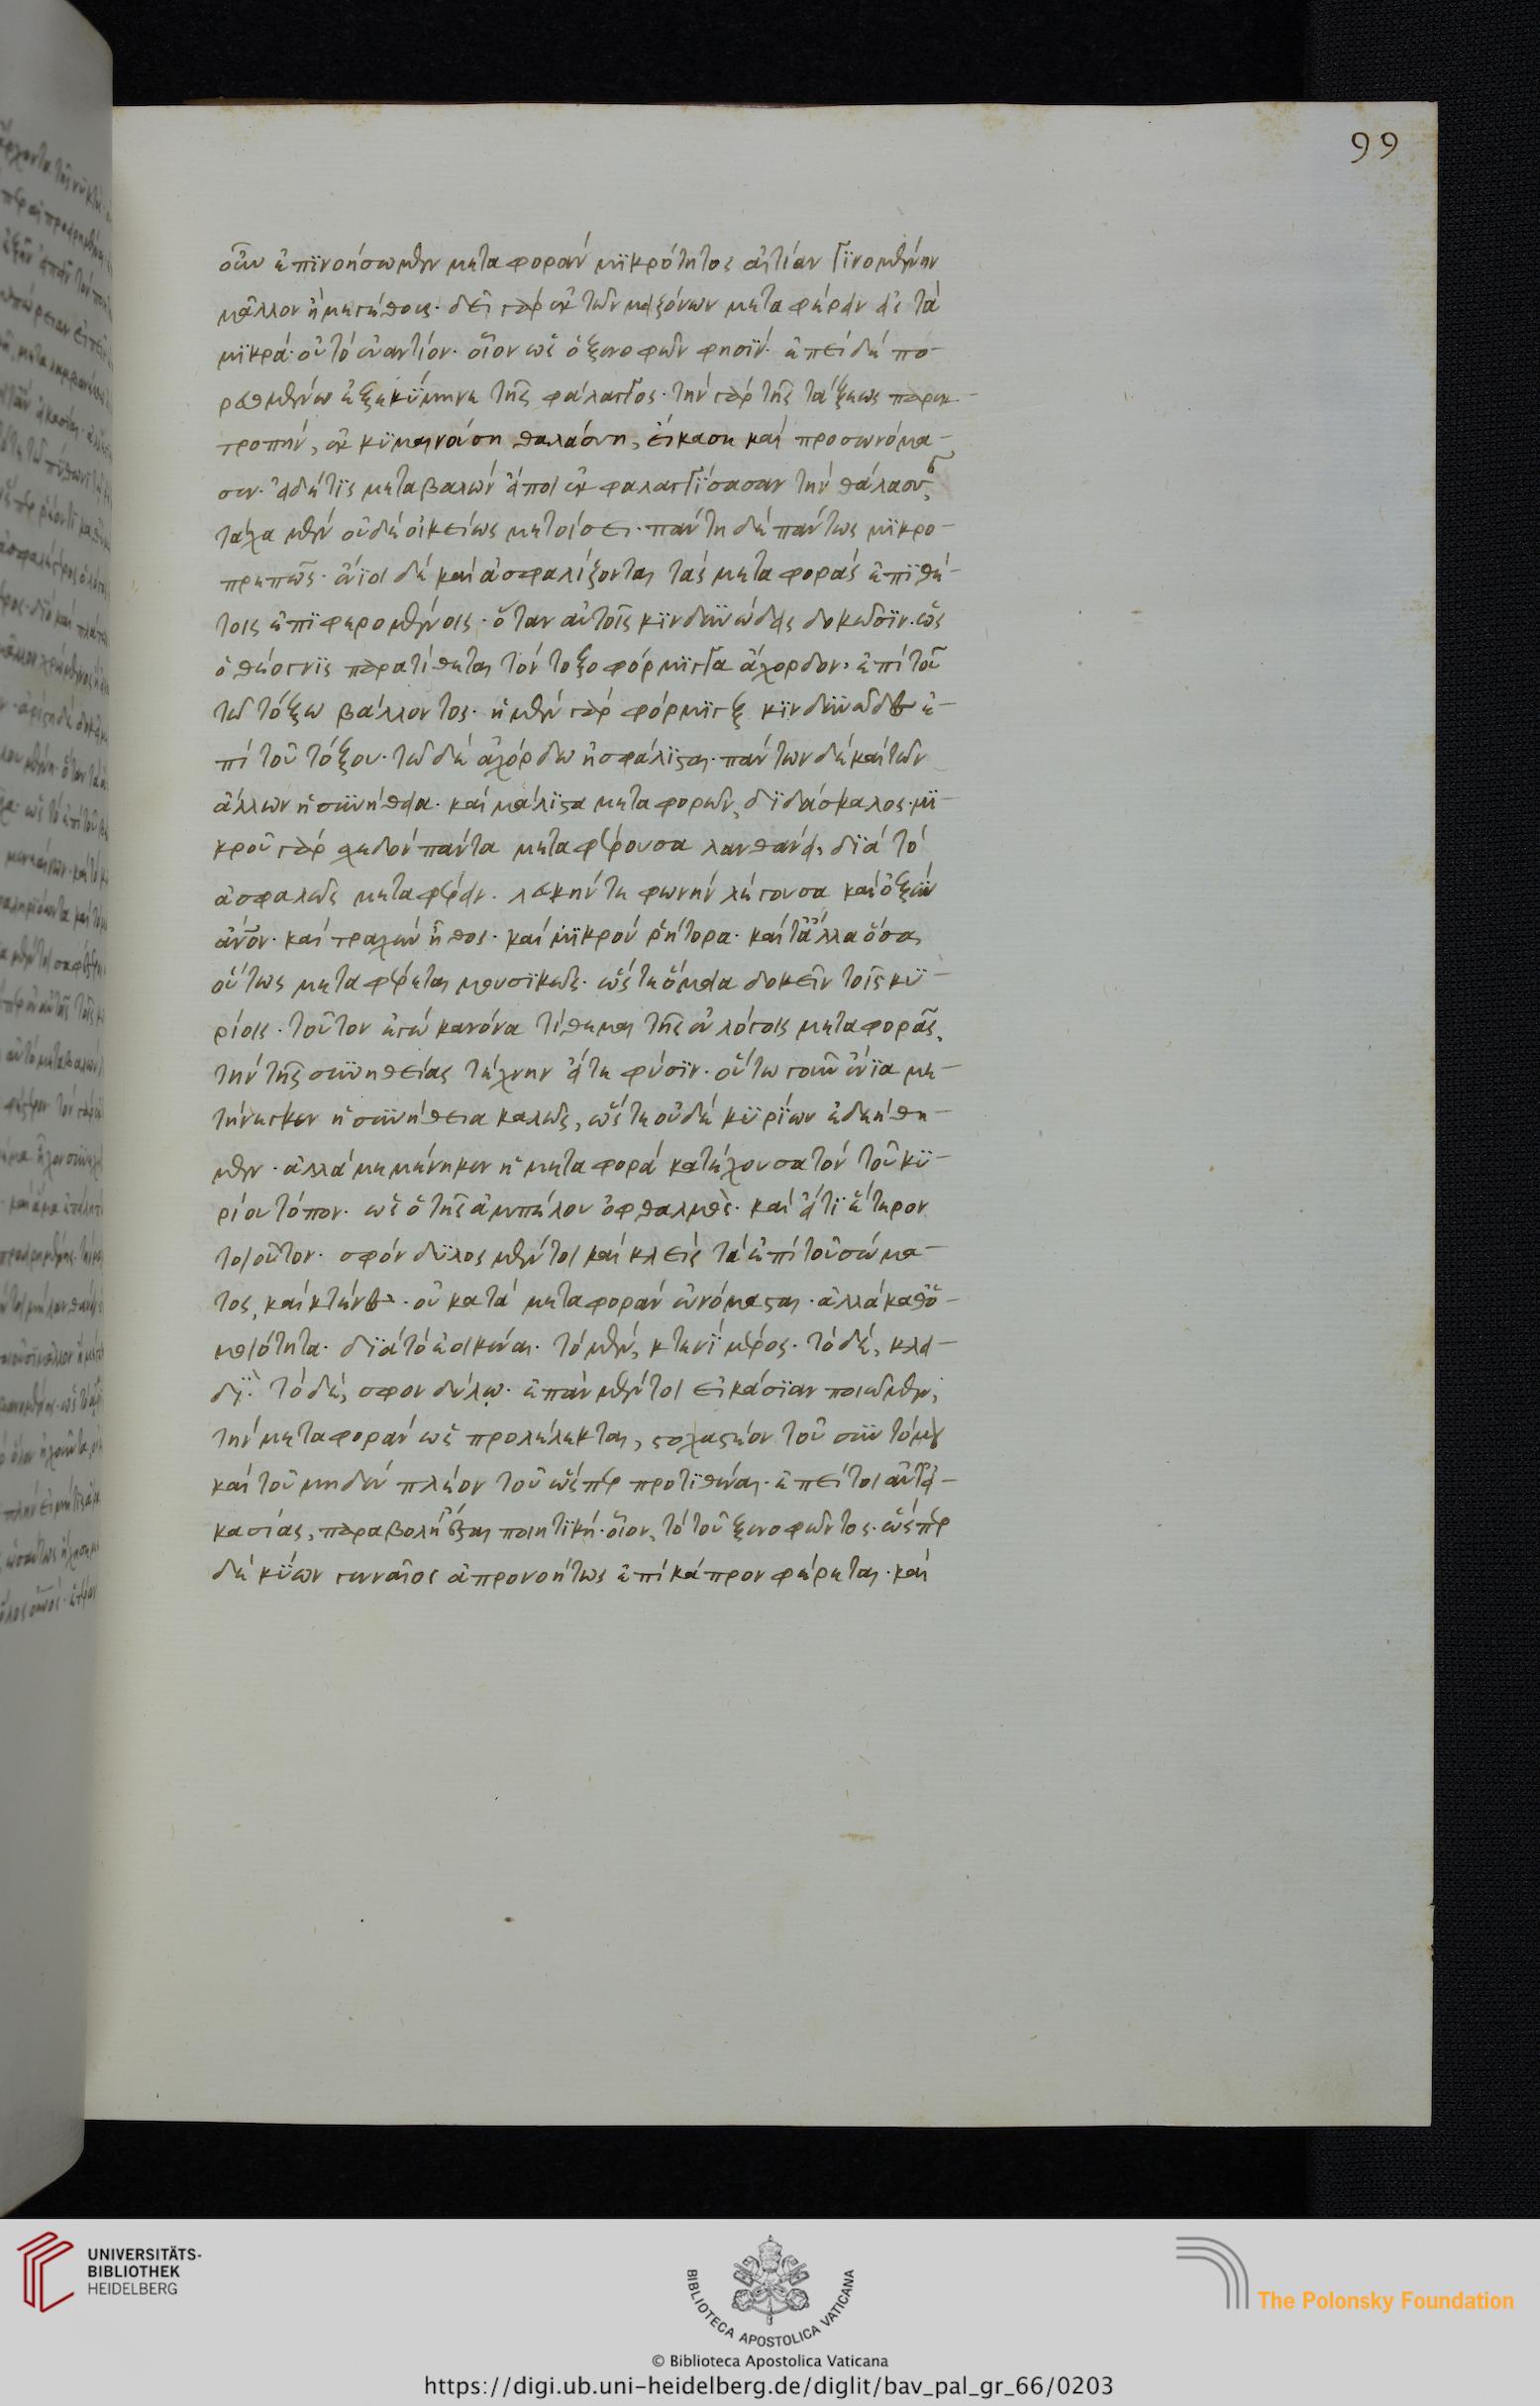 99
οὖν ἐπϊνοήσωμεν μεταφορὰν μϊκρότητος αἰτίαν γϊνομένην
μᾶλλον ἢ μεγέθους· δεῖ γὰρ ἐκ τῶν μειζόνων μεταφέρειν εἰς τὰ
μϊκρά· οὐ τὸ ἐναντίον· οἷον ὡς ὁ ξενοφῶν φησϊν· ἐπεὶ δὲ πο-
ρευομένων ἐξεκύμηνε τῆς φάλαγγος· τὴν γὰρ τῆς τάξεως παρεκ-
τροπὴν, ἐκ κϋμαινούση θαλάσση, εἴκασε καὶ προσωνόμα-
σεν· εἰ δέ τϊς μεταβαλὼν εἴποι ἐκ φαλαγγϊσασαν τὴν θάλασσαν,
τάχα μὲν οὐδὲ οἰκείως μετοίσει· πάντη δὲ πάντως μϊκρο-
πρεπῶς· ἔνϊοι δὲ καὶ ἀσφαλίζονται τὰς μεταφορὰς ἐπϊθέ-
τοις ἐπϊφερομένοις· ὅταν αὐτοῖς κϊνδϋνώδεις δοκῶσϊν· ὡς
ὁ θέογνϊς παρατίθεται τὸν τοξοφόρμϊγγα ἄχορδον, ἐπὶ τοῦ
τῶ τόξω βάλλοντος· ἡ μὲν γὰρ φόρμϊγξ κϊνδϋνῶδες ἐ-
πὶ τοῦ τόξου· τῶ δὲ ἀχόρδω ἠσφάλϊσται· πάντων δὲ καὶ τῶν
ἄλλων ἡ σϋνήθεια· καὶ μάλϊστα μεταφορῶν, δϊδάσκαλος· μϊ-
κροῦ γὰρ σχεδὸν πάντα μεταφέρουσα λανθάνει, δϊὰ τὸ
ἀσφαλῶς μεταφέρειν· λευκήν τε φωνὴν λέγουσα καὶ ὀξὺν
ἄνον· καὶ τραχὺ ἦθος· καὶ μϊκρὸν ῥήτορα· καὶ τἆλλα ὅσα
οὕτως μεταφέρεται μουσϊκῶς· ὥστε ὅμοια δοκεῖν τοῖς κϋ-
ρίοις· τοῦτον ἐγὼ κανόνα τίθεμαι τῆς ἐν λόγοις μεταφορᾶς,
τὴν τῆς σϋνηθείας τέχνην εἴτε φύσϊν· οὕτω γοῦν ἔνϊα με-
τήνεγκεν ἡ σϋνήθεια καλῶς, ὥστε οὐδὲ κϋρϊων ἐδεήθη-
μεν· ἀλλὰ μεμένηκεν ἡ μεταφορὰ κατέχουσα τὸν τοῦ κϋ-
ρίου τόπον· ὡς ὁ τῆς ἀμπέλου ὀφθαλμὸς· καὶ εἴ τϊ ἕτερον
τοιοῦτον· σφόνδϋλος μέντοι καὶ κλεὶς τὰ ἐπὶ τοῦ σώμα-
τος, καὶ κτένες· οὐ κατὰ μεταφορὰν ὠνόμασται· ἀλλὰ καθ' ὁ-
μοιότητα· δϊὰ τὸ ἐοικέναι· τὸ μὲν, κτενὶ μέρος· τὸ δὲ, κλει-
δϊ· τὸ δὲ, σφονδύλω· ἐπὰν μέντοι εἰκάσϊαν ποιῶμεν,
τὴν μεταφορὰν ὡς προλέλεκται, στοχαστέον τοῦ σϋντόμου
καὶ τοῦ μηδὲν πλέον τοῦ ὥσπερ προτϊθέναι· ἐπεί τοι ἀντ' εἰ-
κασίας, παραβολὴ ἔσται ποιητϊκή· οἷον, τὸ τοῦ ξενοφῶντος· ὥσπερ
δὲ κϋων γενναῖος ἀπρονοήτως ἐπὶ κάπρον φέρεται· καὶ
UNIVERSITÄTS-
BIBLIOTHEK
HEIDELBERG
BIBLIOTECA APOSTOLICA VATICANA
The Polonsky Foundation
© Biblioteca Apostolica Vaticana
https://digi.ub.uni-heidelberg.de/diglit/bav_pal_gr_66/0203